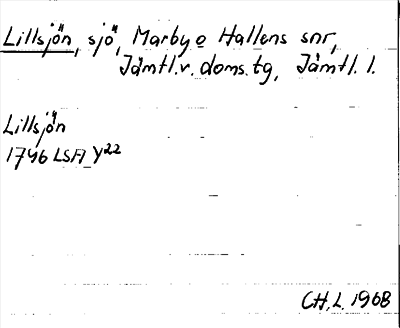 Lillsjön, sjö, Marby o Hallens snr,
Jämtl.v. doms.tg, Jämtl. l.
Lillsjön
1746 LSA Y22
CH.L. 1968